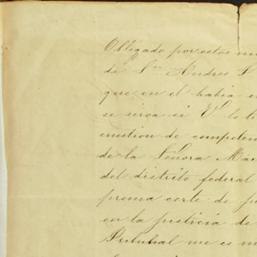 Obligado por estos
de Sn. Andres
que en el habia
se sirva si V. lo
cuestion de competen
de la Señora Mar
del distrito federal
prema corte de
en la justicia de
Tribunal me es